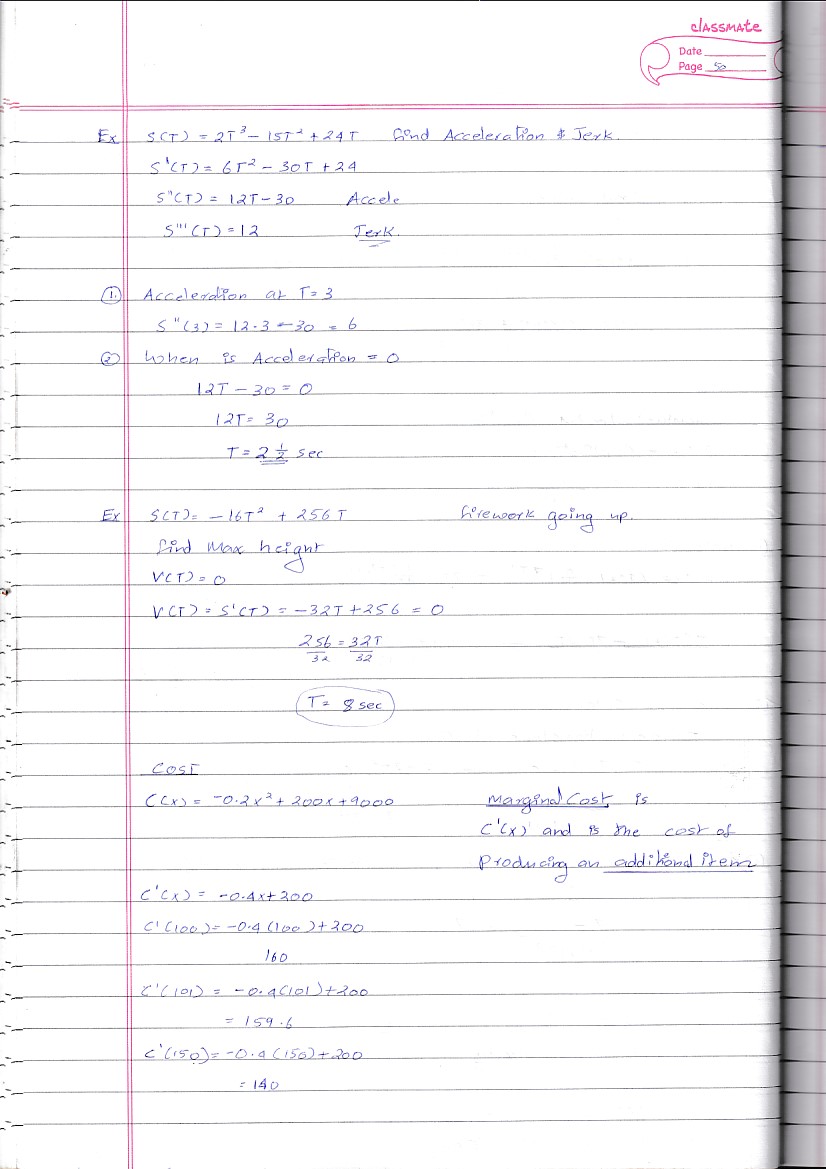 classmate
Date
Page 50
Ex S(T) = 2T³ - 15T² + 24T find Acceleration & Jerk.
S'(T) = 6T² - 30T + 24
S"(T) = 12T - 30 Accele
S'''(T) = 12 Jerk.
① Acceleration at T = 3
S"(3) = 12·3 - 30 = 6
② When is Acceleration = 0
12T - 30 = 0
12T = 30
T = 2 1/2 sec
Ex S(T) = -16T² + 256T firework going up.
find Max height
V(T) = 0
V(T) = S'(T) = -32T + 256 = 0
256/32 = 32T/32
T = 8 sec
COST
C(x) = -0.2x² + 200x + 9000 Marginal Cost is
C'(x) and is the cost of
Producing an additional item
C'(x) = -0.4x + 200
C'(100) = -0.4(100) + 200
160
C'(101) = -0.4(101) + 200
= 159.6
C'(150) = -0.4(150) + 200
= 140